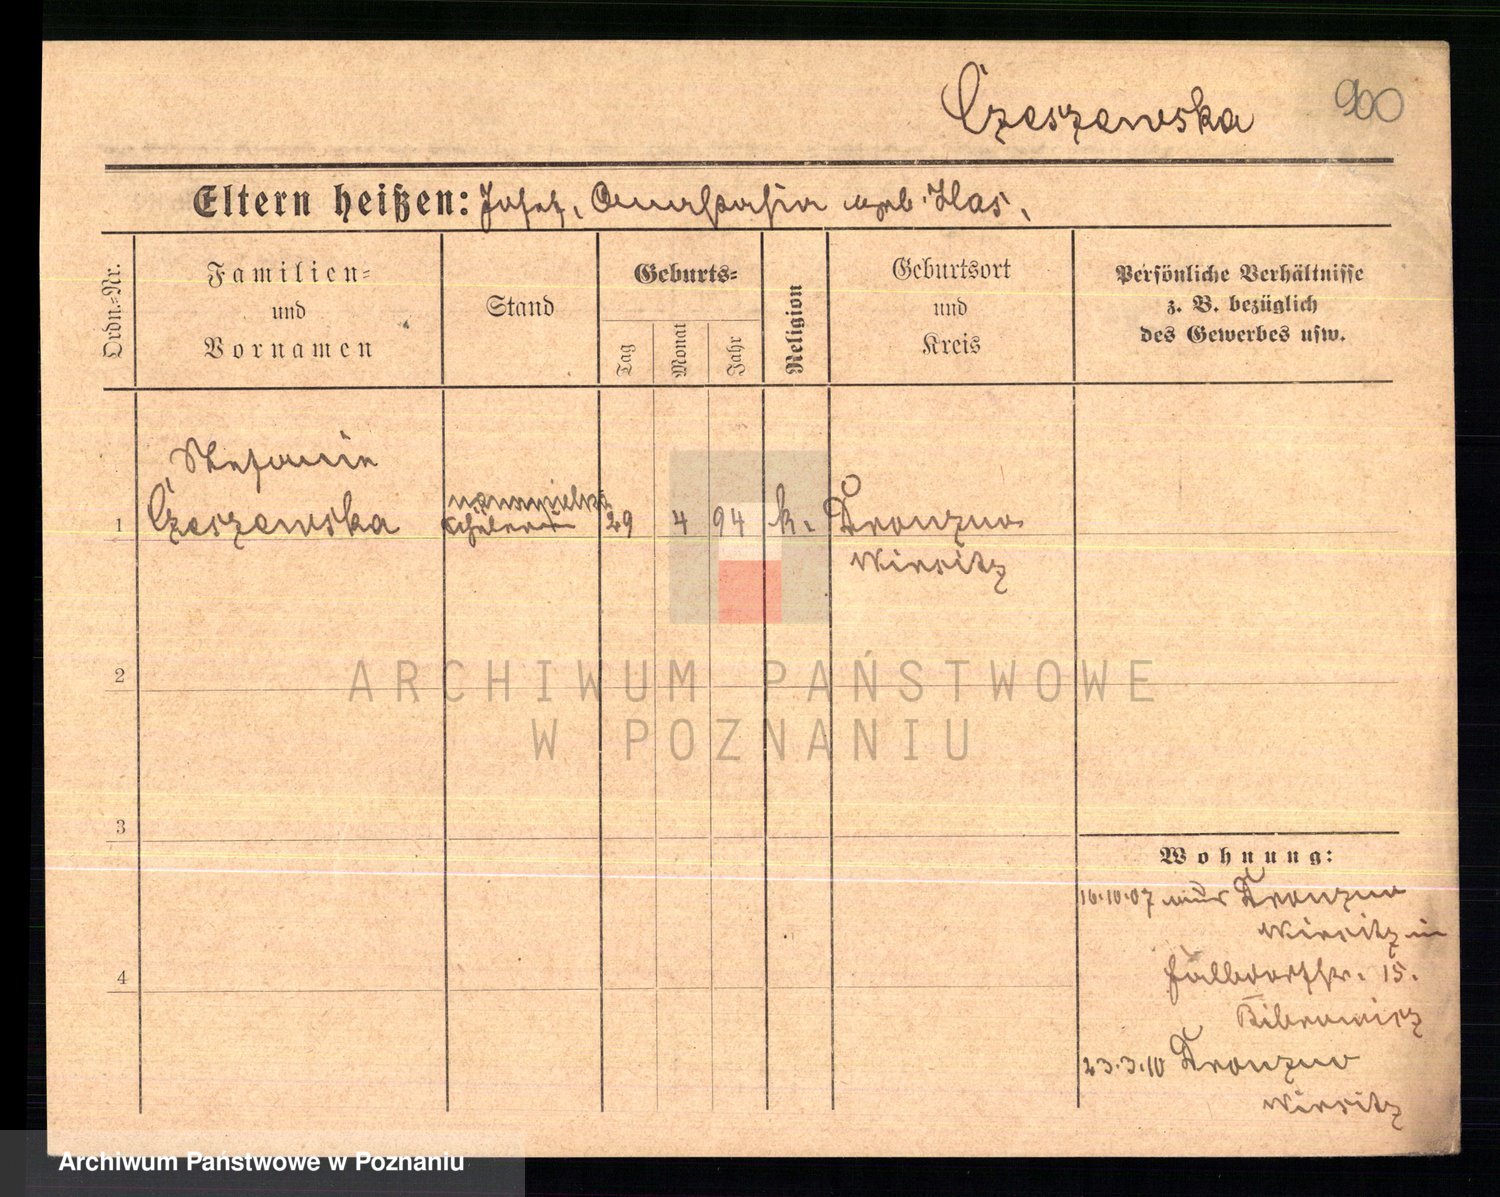 Czeszewska 900
Eltern heißen: Josef, Anastasia geb. Ilas.
Ordn.-Nr.
Familien-
und
Vornamen
Stand
Geburts-
Tag
Monat
Jahr
Religion
Geburtsort
und
Kreis
Persönliche Verhältnisse
z. B. bezüglich
des Gewerbes usw.
Stefanie
1 Czeszewska Schülerin 29 4 94 k. Dronzno
Wirsitz
2
3
4
Wohnung:
16.10.07 aus Dronzno
Wirsitz in
15.
23.3.10 Dronzno
Wirsitz
ARCHIWUM PAŃSTWOWE
W POZNANIU
Archiwum Państwowe w Poznaniu